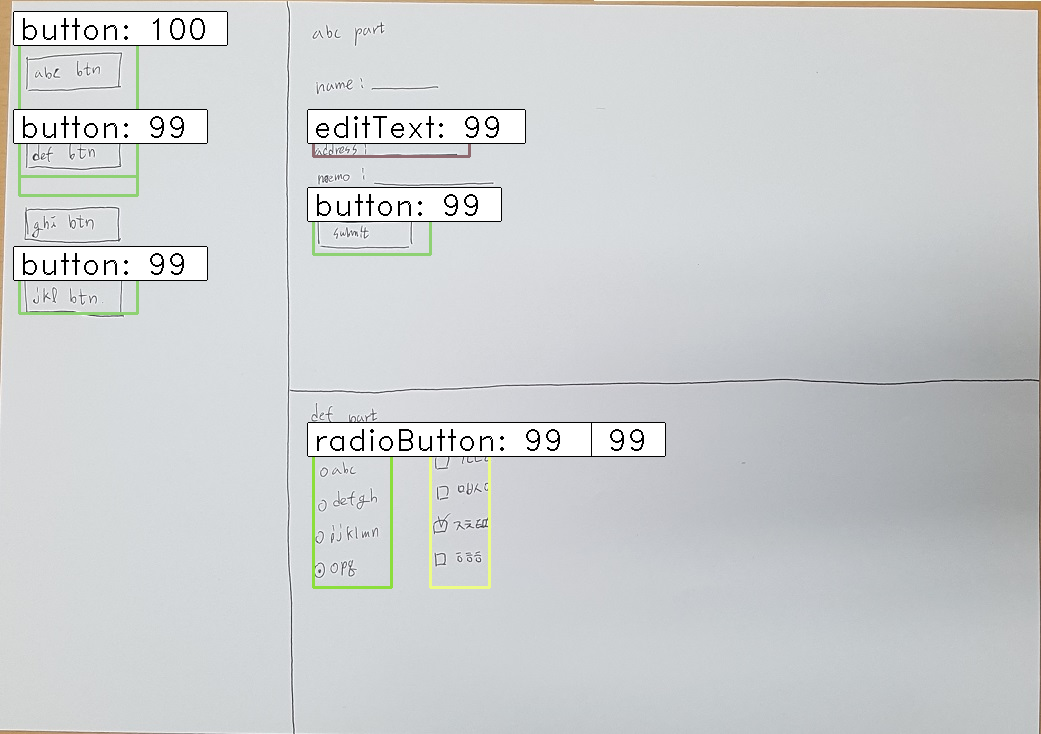 button: 100
abc btn
button: 99
def btn
ghi btn
button: 99
jkl btn.
abc part
name :
editText: 99
address :
memo :
button: 99
submit
def part
radioButton: 99
99
abc
defgh
ijklmn
opq
ㅁㅂㅅㅇ
ㅎㅎㅎ